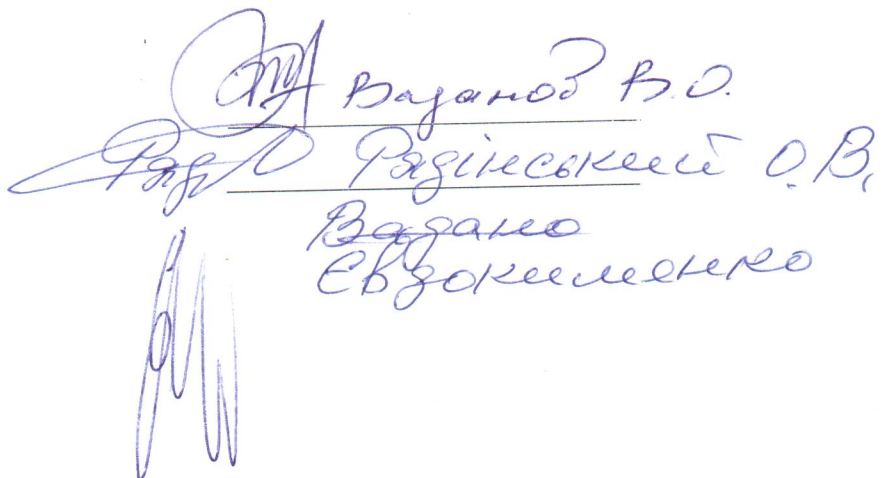 Ваданов В.О.
Ряд Рядінський О.В.
Вадано
Євдокименко